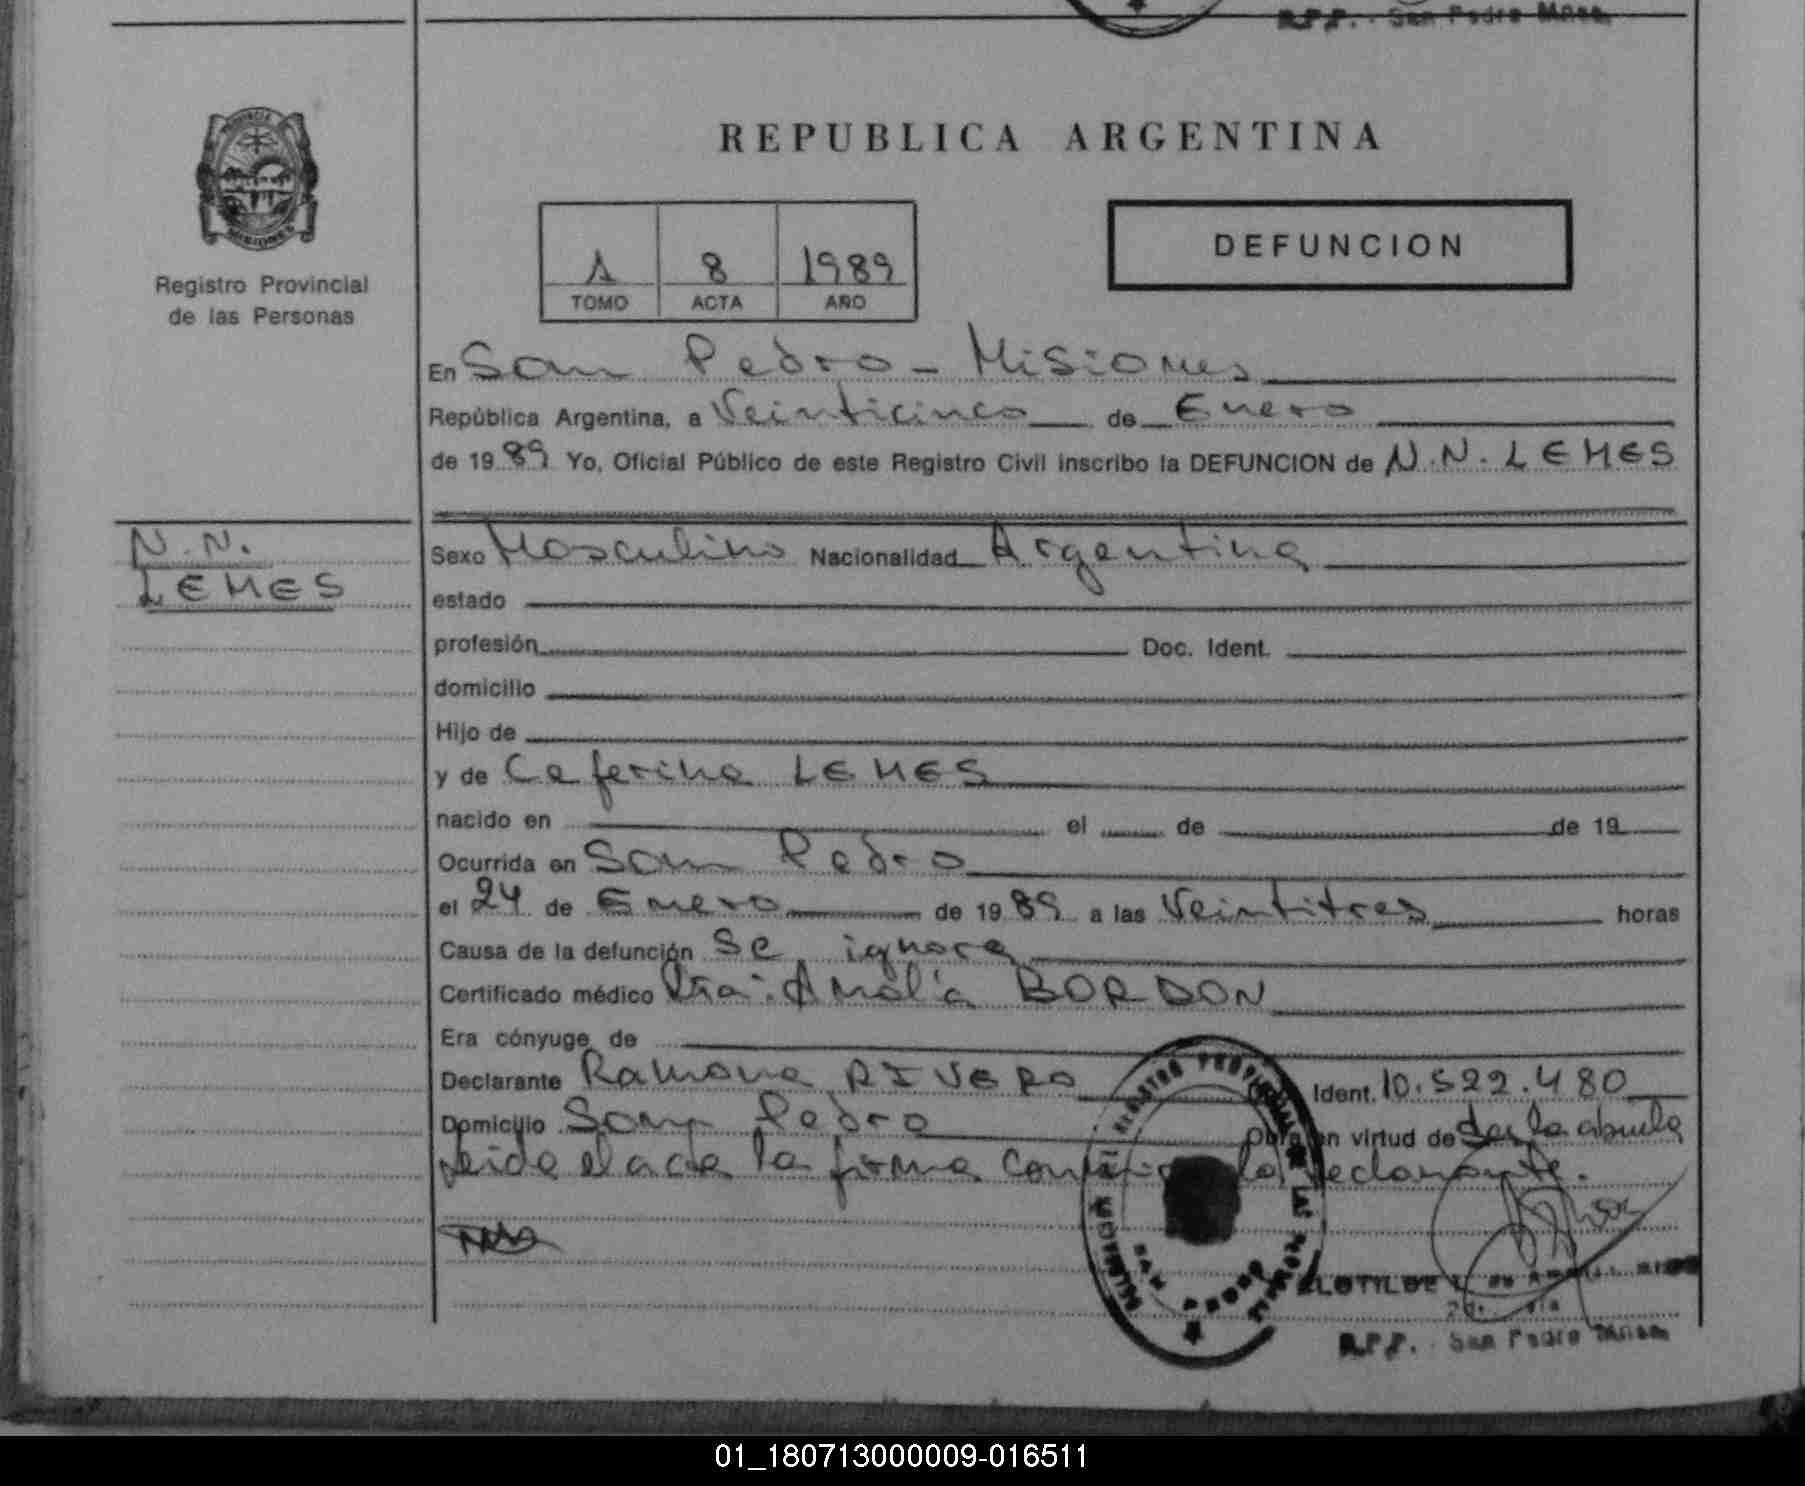 R.P.P. - San Pedro Mnes.
PROVINCIA
MISIONES
Registro Provincial
de las Personas
REPUBLICA ARGENTINA
1 8 1989
TOMO ACTA AÑO
DEFUNCION
En San Pedro - Misiones
República Argentina, a Veinticinco de Enero
de 1989 Yo, Oficial Público de este Registro Civil inscribo la DEFUNCION de N.N. LEMES
N.N.
LEMES
Sexo Masculino Nacionalidad Argentina
estado
profesión Doc. Ident.
domicilio
Hijo de
y de Ceferina LEMES
nacido en el de de 19
Ocurrida en San Pedro
el 24 de Enero de 1989 a las Veintitres horas
Causa de la defunción Se ignora
Certificado médico Dra. Amalia BORDON
Era cónyuge de
Declarante Ramona RIVERO Ident. 10.522.480
Domicilio San Pedro Obra en virtud de ser la abuela
Leida el acta la firma conmigo la declarante.
REGISTRO PROVINCIAL DE LAS PERSONAS
SAN PEDRO
MISIONES
CLOTILDE
R.P.P. - San Pedro Mnes.
01_180713000009-016511